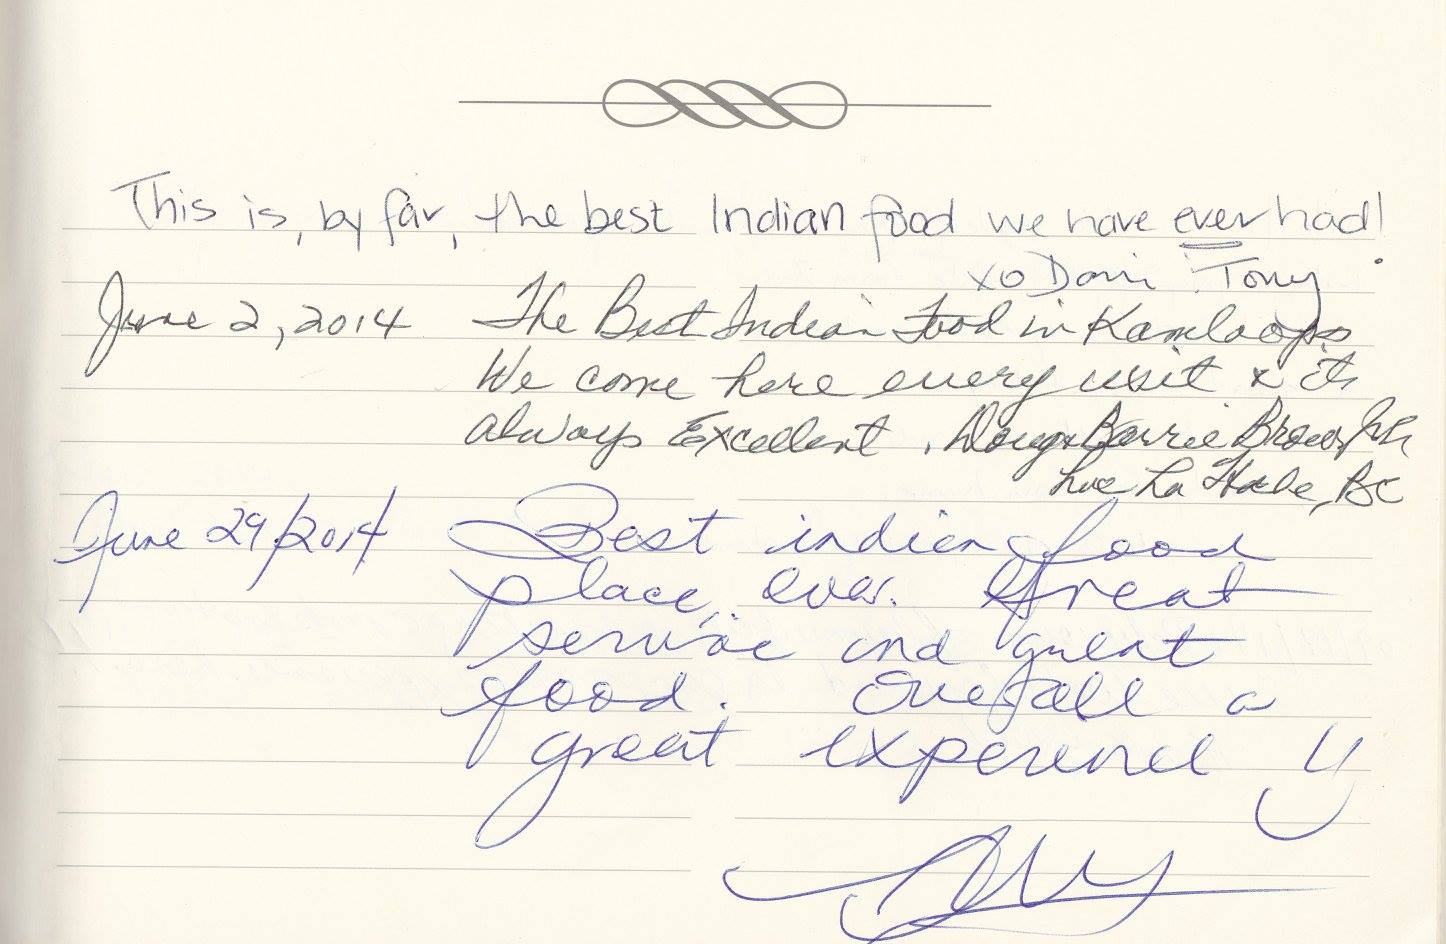 This is, by far, the best Indian food we have ever had!
xo Dani Tony
June 2, 2014 The Best Indian Food in Kamloops
We come here every visit & its
always Excellent. Doug & Barrie Brown
Lac La Hache, BC
June 29/2014 Best indian food
place, ever. Great
service and great
food. Overall a
great experience